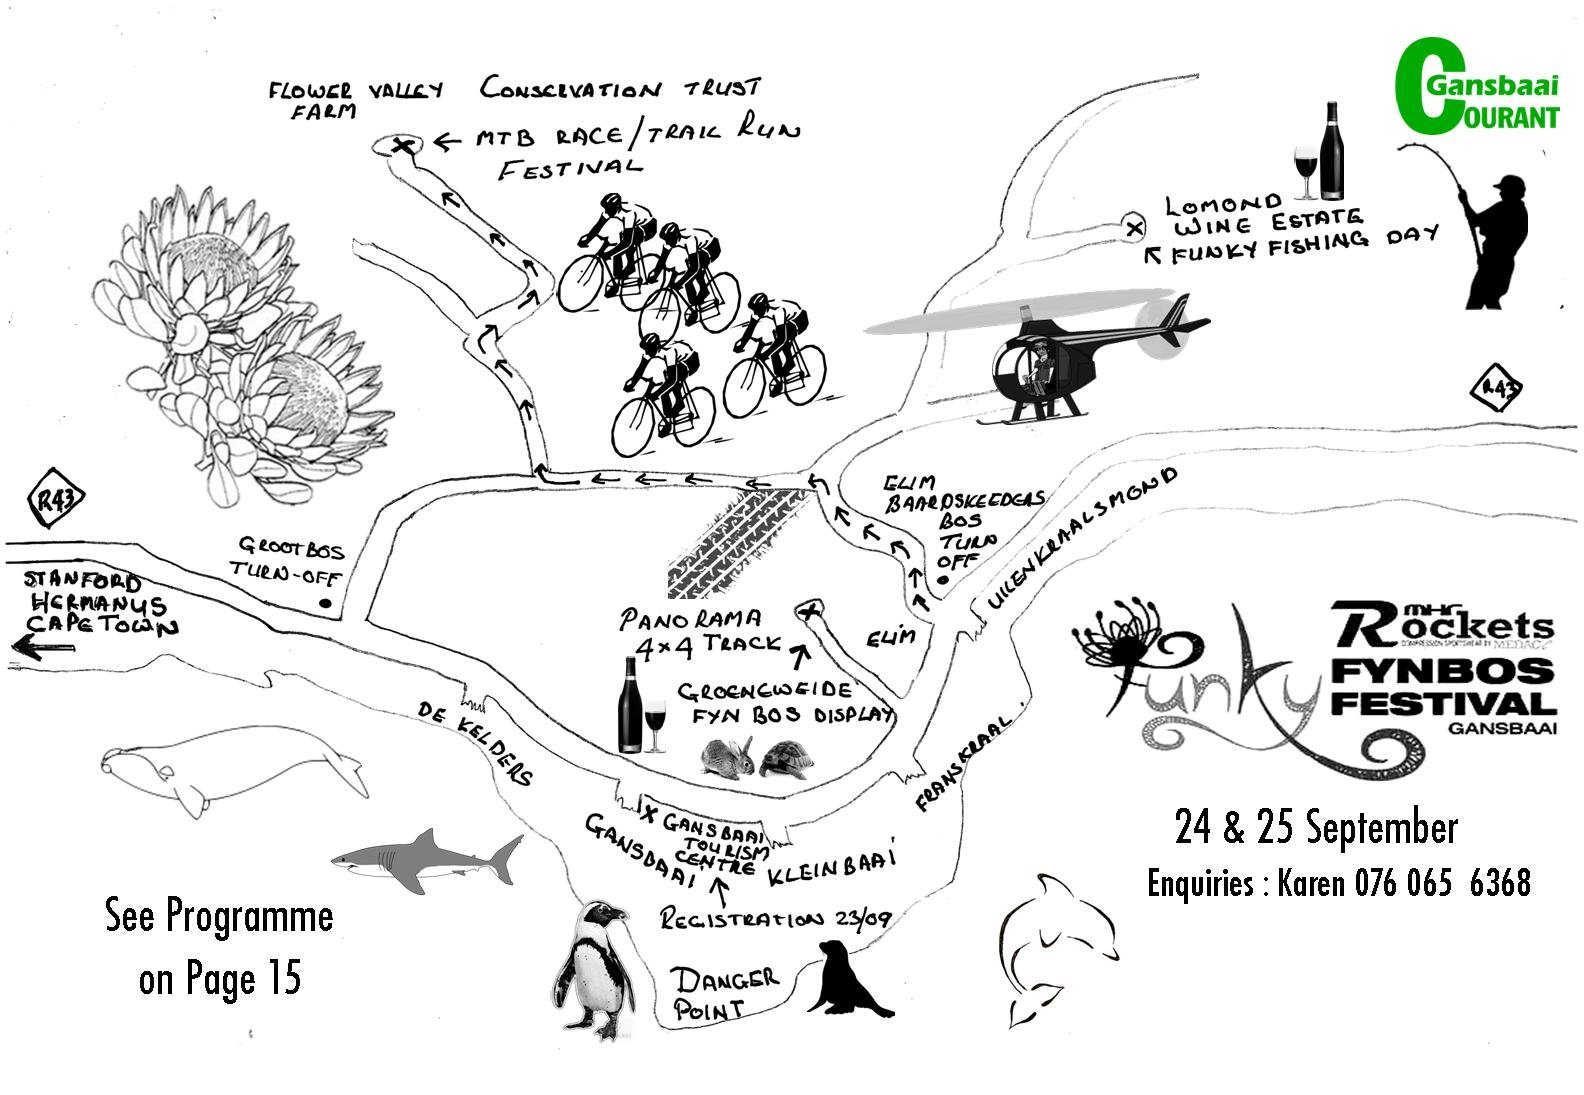 FLOWER VALLEY CONSERVATION TRUST
FARM
MTB RACE/TRAIL RUN
FESTIVAL
Gansbaai
COURANT
LOMOND
WINE ESTATE
FUNKY FISHING DAY
R43
R43
GROOTBOS
TURN-OFF
STANFORD
HERMANUS
CAPE TOWN
ELIM
BAARDSKEEDERS
BOS
TURN
OFF
UILENKRAALSMOND
PANORAMA
4x4 TRACK
ELIM
GROENEWEIDE
FYN BOS DISPLAY
DE KELDERS
FRANSKRAAL
X GANSBAAI
TOURISM
CENTRE
GANSBAAI
KLEINBAAI
REGISTRATION 23/09
DANGER
POINT
Funky
mHr
Rockets
COMPRESSION SPORTSWEAR BY MEDAC
FYNBOS
FESTIVAL
GANSBAAI
24 & 25 September
Enquiries : Karen 076 065 6368
See Programme
on Page 15